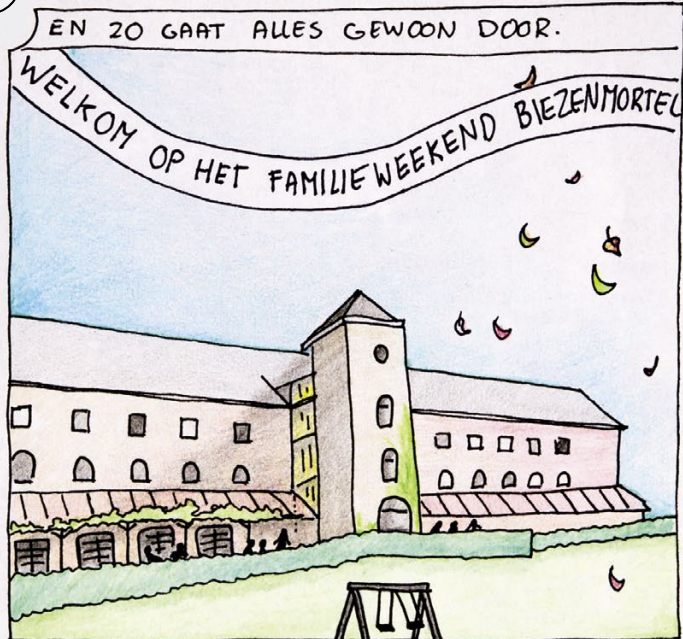 EN ZO GAAT ALLES GEWOON DOOR.
WELKOM OP HET FAMILIEWEEKEND BIEZENMORTEL